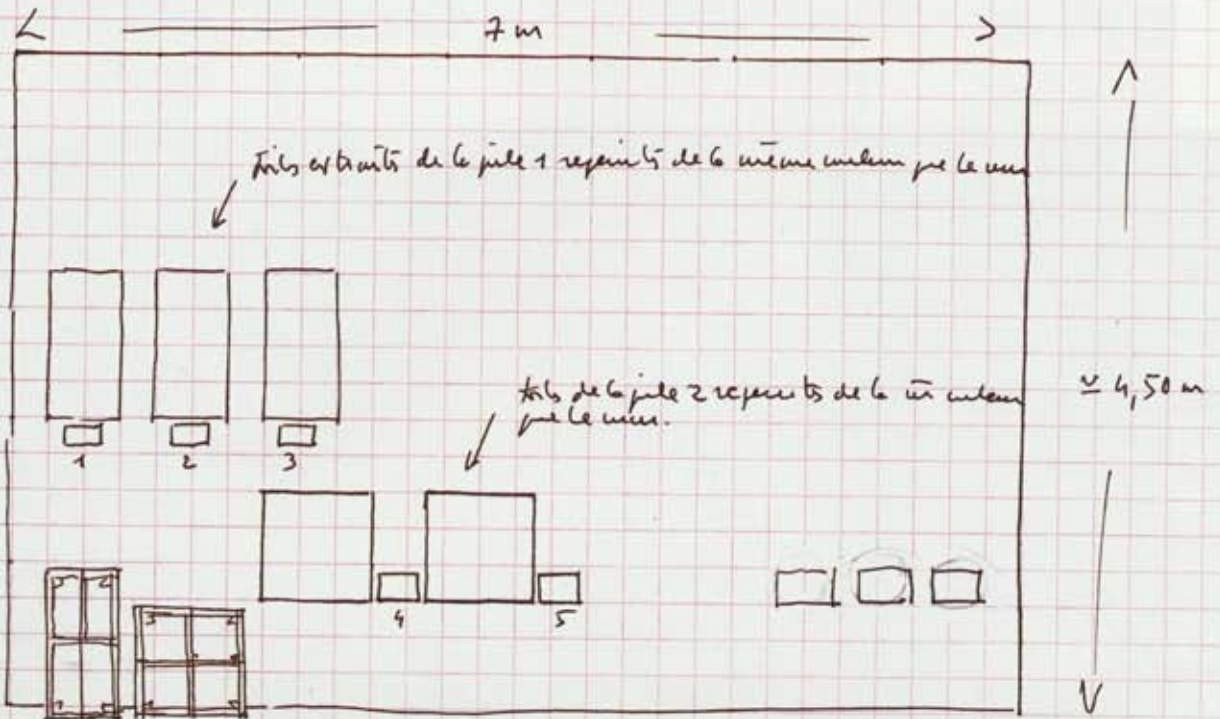 7 m
toiles extraites de la pile 1 repeints de la même couleur que le mur
toiles de la pile 2 repeints de la m couleur
que le mur.
≃ 4,50 m
1 2 3
4 5
1 2
3 2